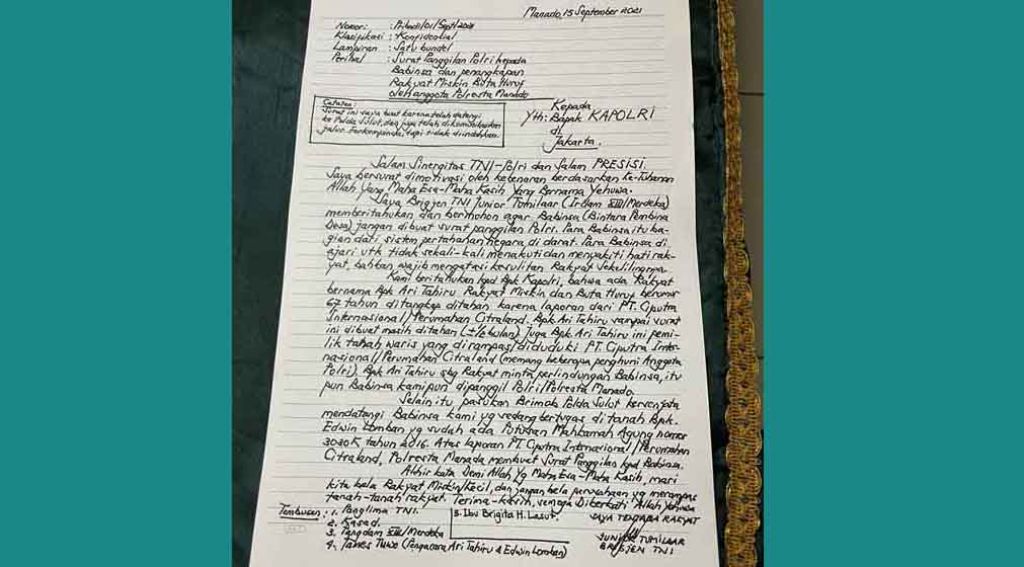 Manado, 15 September 2021
Nomor : Pribadi/01/Sept/2021
Klasifikasi : Konfidensial
Lampiran : Satu bundel
Perihal : Surat Panggilan Polri kepada
Babinsa dan penangkapan
Rakyat Miskin Buta Huruf
oleh anggota Polresta Manado
Catatan:
Surat ini saya buat karena telah datangi
ke Polda Sulut, dan juga telah dikomunikasikan
jalur Forkompimda, tapi tidak diindahkan.
Kepada
Yth: Bapak KAPOLRI
di
Jakarta.
Salam Sinergitas TNI-Polri dan Salam PRESISI.
Saya bersurat dimotivasi oleh kebenaran berdasarkan Ke-Tuhanan
Allah Yang Maha Esa-Maha Kasih Yang Bernama Yehuwa.
Saya Brigjen TNI Junior Tumilaar (Irdam XIII/Merdeka)
memberitahukan dan bermohon agar Babinsa (Bintara Pembina
Desa) jangan dibuat surat panggilan Polri. Para Babinsa itu ba-
gian dari sistem pertahanan negara di darat. Para Babinsa di
ajari utk tidak sekali-kali menakuti dan menyakiti hati rak-
yat, bahkan wajib mengatasi kesulitan Rakyat Sekelilingnya.
Kami beritahukan kpd Bpk Kapolri, bahwa ada Rakyat
bernama Bpk Ari Tahiru Rakyat Miskin dan Buta Huruf berumur
67 tahun ditangkap ditahan karena laporan dari PT. Ciputra
Internasional/Perumahan Citraland. Bpk Ari Tahiru sampai surat
ini dibuat masih ditahan (+/- bulan) Juga Bpk Ari Tahiru ini pemi-
lik tanah waris yang dirampas/diduduki PT. Ciputra Inter-
nasional/Perumahan Citraland (memang beberapa penghuni Anggota
Polri). Bpk Ari Tahiru sbg Rakyat minta perlindungan Babinsa, itu
pun Babinsa kamipun dipanggil Polri/Polresta Manado.
Selain itu pasukan Brimob Polda Sulut bersenjata
mendatangi Babinsa kami yg sedang bertugas di tanah Bpk.
Edwin Lomban yg sudah ada Putusan Mahkamah Agung nomor
3030K tahun 2016. Atas laporan PT. Ciputra Internasional/Perumahan
Citraland, Polresta Manado membuat Surat Panggilan kpd Babinsa.
Akhir kata Demi Allah Yg Maha Esa-Maha Kasih, mari
kita bela Rakyat Miskin/Kecil, dan jangan bela perusahaan yg merampas
tanah-tanah rakyat. Terima-kasih, semoga Diberkati Allah Yehuwa
Tembusan : 1. Panglima TNI.
2. Kasad.
3. Pangdam XIII/Merdeka
4. James Tuwo (Pengacara Ari Tahiru & Edwin Lomban)
5. Ibu Brigita H. Lasut.
SAYA TENTARA RAKYAT
JUNIOR TUMILAAR
BRIGJEN TNI